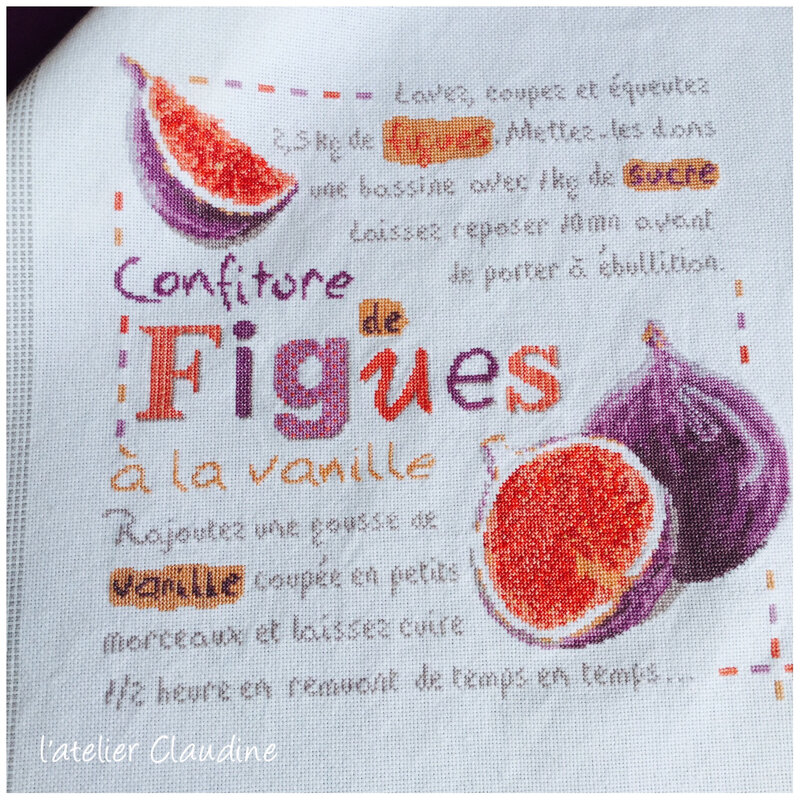 Lavez, coupez et équeutez
2,5 kg de figues. Mettez-les dans
une bassine avec 1kg de sucre
Laissez reposer 10mn avant
de porter à ébullition.
Confiture
de
Figues
à la vanille
Rajoutez une gousse de
vanille coupée en petits
morceaux et laissez cuire
1/2 heure en remuant de temps en temps...
l'atelier Claudine